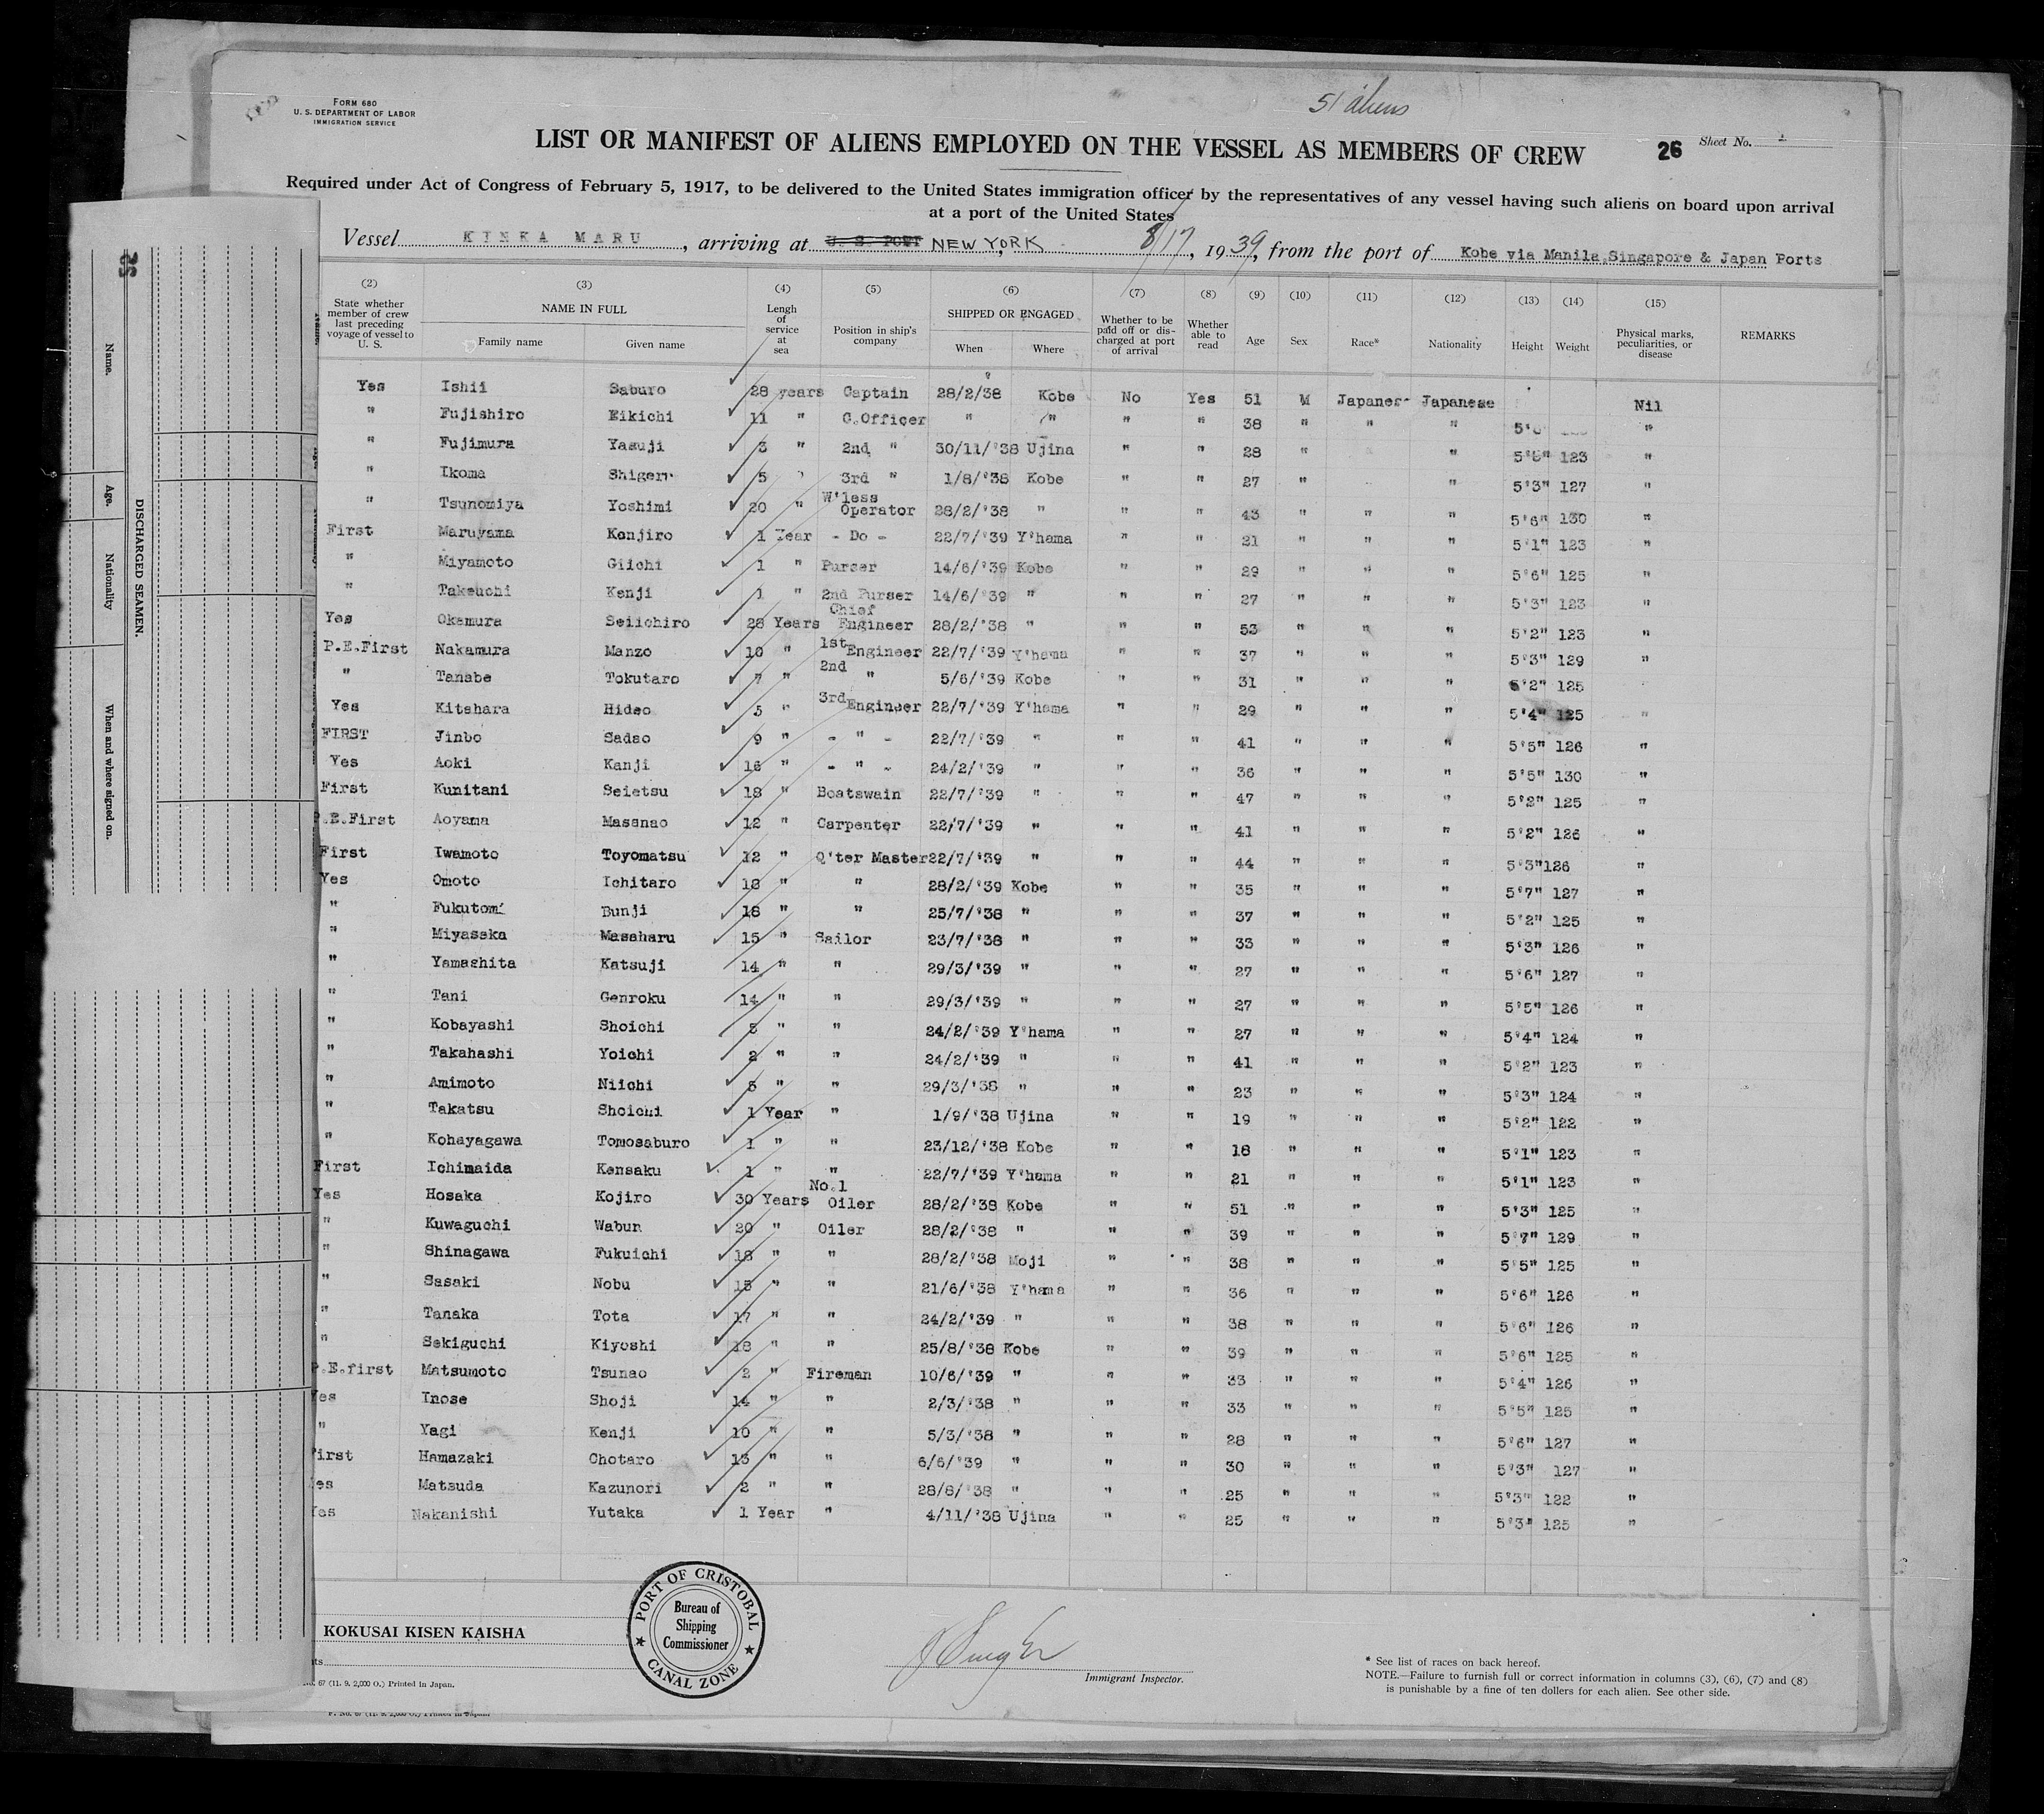 51 aliens
FORM 680
U. S. DEPARTMENT OF LABOR
IMMIGRATION SERVICE
LIST OR MANIFEST OF ALIENS EMPLOYED ON THE VESSEL AS MEMBERS OF CREW
26 Sheet No.
Required under Act of Congress of February 5, 1917, to be delivered to the United States immigration officer by the representatives of any vessel having such aliens on board upon arrival
at a port of the United States
Vessel KINKA MARU, arriving at U. S. PORT NEW YORK, 8/17, 1939, from the port of Kobe via Manila,Singapore & Japan Ports
(2) (3) (4) (5) (6) (7) (8) (9) (10) (11) (12) (13) (14) (15)
State whether member of crew last preceding voyage of vessel to U. S. NAME IN FULL Family name Given name Lengh of service at sea Position in ship's company SHIPPED OR ENGAGED When Where Whether to be paid off or discharged at port of arrival Whether able to read Age Sex Race* Nationality Height Weight Physical marks, peculiarities, or disease REMARKS
Yes Ishii Saburo 28 years Captain 28/2/38 Kobe No Yes 51 M Japanes Japanese Nil
" Fujishiro Eikichi 11 " C.Officer " " " " 38 " " " "
" Fujimura Yasuji 3 " 2nd " 30/11/'38 Ujina " " 28 " " 5'5" 123 "
" Ikoma 5 " 3rd " 1/8/'38 Kobe " " 27 " " 5'3" 127 "
" Tsunomiya Yoshimi 20 " W'less Operator 28/2/'38 " " " 43 " " " 5'6" 130 "
First Maruyama Kenjiro 1 Year - Do - 22/7/'39 Y'hama " " 21 " " " 5'1" 123 "
" Miyamoto Giichi 1 " Purser 14/6/'39 Kobe " " 29 " " " 5'6" 125 "
" Takeuchi Kenji 1 " 2nd Purser 14/6/'39 " " " 27 " " " 5'3" 123 "
Yes Okamura Seiichiro 28 Years Chief Engineer 28/2/'38 " " " 53 " " " 5'2" 123 "
P.E.First Nakamura Manzo 10 " 1st Engineer 22/7/'39 Y'hama " " 37 " " " 5'3" 129 "
" Tanabe Tokutaro 7 " 2nd " 5/6/'39 Kobe " " 31 " " " 5'2" 125
Yes Kitahara Hideo 5 " 3rd Engineer 22/7/'39 Y'hama " " 29 " " " 5'4" 125 "
FIRST Jinbo Sadao 9 " - " - 22/7/'39 " " " 41 " " " 5'5" 126 "
Yes Aoki Kanji 16 " - " - 24/2/'39 " " " 36 " " " 5'5" 130 "
First Kunitani Seietsu 18 " Boatswain 22/7/'39 " " " 47 " " " 5'2" 125 "
P.E.First Aoyama Masanao 12 " Carpenter 22/7/'39 " " " 41 " " " 5'2" 126 "
First Iwamoto Toyomatsu 12 " Q'ter Master 22/7/'39 " " " 44 " " " 5'3" 126 "
Yes Omoto Ichitaro 18 " " 28/2/'39 Kobe " " 35 " " " 5'7" 127 "
" Fukutomi Bunji 18 " " 25/7/'38 " " " 37 " " " 5'2" 125 "
" Miyasaka Masaharu 15 " Sailor 23/7/'38 " " " 33 " " " 5'3" 126 "
" Yamashita Katsuji 14 " " 29/3/'39 " " " 27 " " " 5'6" 127 "
" Tani Genroku 14 " " 29/3/'39 " " " 27 " " " 5'5" 126 "
" Kobayashi Shoichi 8 " " 24/2/'39 Y'hama " " 27 " " " 5'4" 124 "
" Takahashi Yoichi 2 " " 24/2/'39 " " " 41 " " " 5'2" 123 "
" Amimoto Niichi 5 " " 29/3/'38 " " " 23 " " " 5'3" 124 "
" Takatsu Shoichi 1 Year " 1/9/'38 Ujina " " 19 " " " 5'2" 122 "
" Kohayagawa Tomosaburo 1 " " 23/12/'38 Kobe " " 18 " " " 5'1" 123 "
First Ichimaida Kensaku 1 " " 22/7/'39 Y'hama " " 21 " " " 5'1" 123 "
Yes Hosaka Kojiro 30 Years No.1 Oiler 28/2/'38 Kobe " " 51 " " " 5'3" 125 "
" Kuwaguchi Wabun 20 " Oiler 28/2/'38 " " " 39 " " " 5'7" 129 "
" Shinagawa Fukuichi 18 " " 28/2/'38 Moji " " 38 " " " 5'5" 125 "
" Sasaki Nobu 15 " " 21/6/'38 Y'hama " " 36 " " " 5'6" 126 "
" Tanaka Tota 17 " " 24/2/'39 " " " 38 " " " 5'6" 126 "
" Sekiguchi Kiyoshi 18 " " 25/8/'38 Kobe " " 39 " " " 5'6" 125 "
P.E.first Matsumoto Tsunao 2 " Fireman 10/6/'39 " " " 33 " " " 5'4" 126 "
Yes Inose Shoji 14 " " 2/3/'38 " " " 33 " " " 5'5" 125 "
" Yagi Kenji 10 " " 5/3/'38 " " " 28 " " " 5'6" 127 "
First Hamazaki Chotaro 13 " " 6/6/'39 " " " 30 " " " 5'3" 127 "
Yes Matsuda Kazunori 2 " " 28/8/'38 " " " 25 " " " 5'3" 122 "
Yes Nakanishi Yutaka 1 Year " 4/11/'38 Ujina " " 25 " " " 5'3" 125 "
KOKUSAI KISEN KAISHA
PORT OF CRISTOBAL
Bureau of
Shipping
Commissioner
CANAL ZONE
Immigrant Inspector.
* See list of races on back hereof.
NOTE.—Failure to furnish full or correct information in columns (3), (6), (7) and (8)
is punishable by a fine of ten dollars for each alien. See other side.
67 (11. 9. 2,000 O.) Printed in Japan.
F. No. 67 (11. 9. 2,000 O.) Printed in Japan.
Name.
Age.
Nationality
When and where signed on.
DISCHARGED SEAMEN.